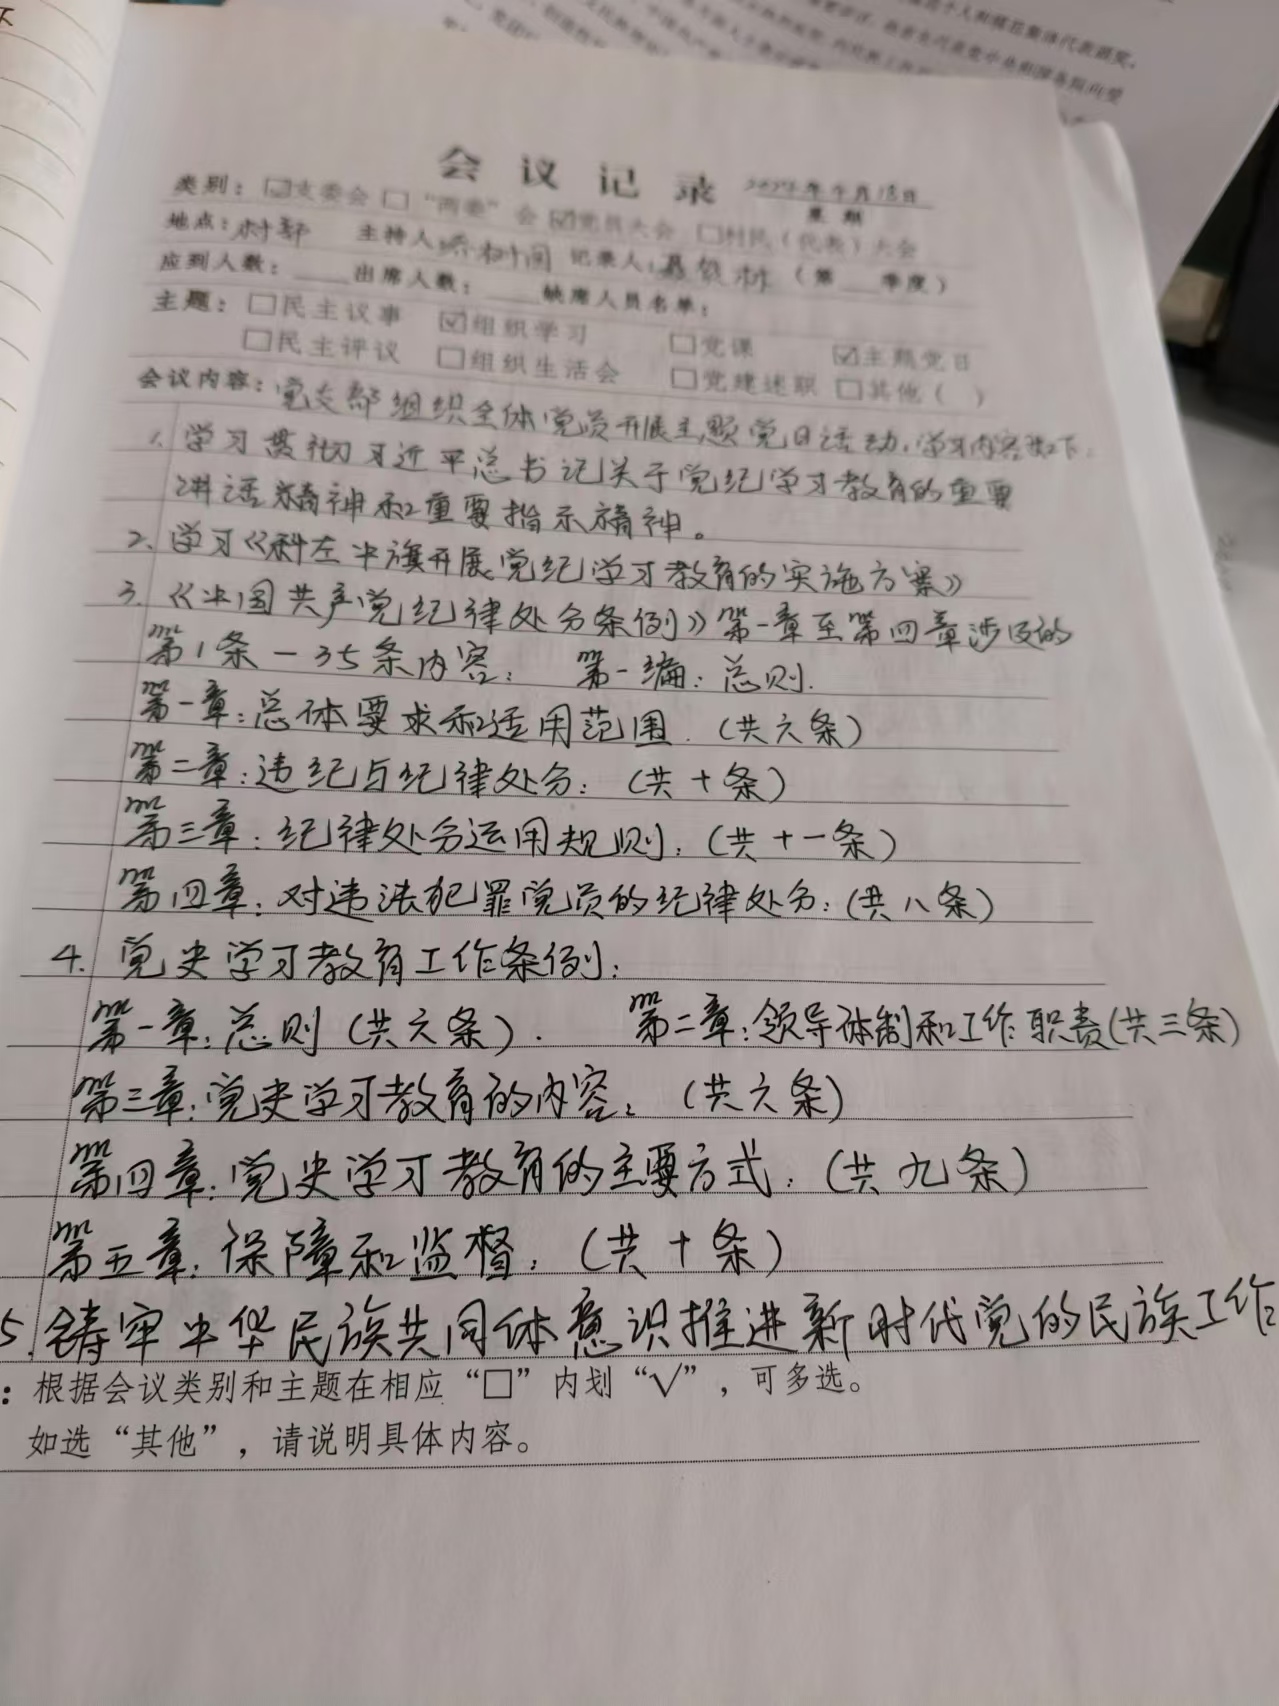 会议记录 2024年 月18日
星期
类别：☑支委会 □“两委”会 ☑党员大会 □村民（代表）大会
地点：村部 主持人： 记录人： （第 季度）
应到人数： 出席人数： 缺席人员名单：
主题：□民主议事 ☑组织学习 □党课 ☑主题党日
□民主评议 □组织生活会 □党建述职 □其他（ ）
会议内容：党支部组织全体党员开展主题党日活动，学习内容如下：
1. 学习贯彻习近平总书记关于党纪学习教育的重要
讲话精神和重要指示精神。
2. 学习《科左中旗开展党纪学习教育的实施方案》
3. 《中国共产党纪律处分条例》第一章至第四章涉及的
第1条－35条内容： 第一编：总则．
第一章：总体要求和适用范围．（共六条）
第二章：违纪与纪律处分：（共十条）
第三章：纪律处分运用规则：（共十一条）
第四章：对违法犯罪党员的纪律处分：（共八条）
4. 党史学习教育工作条例：
第一章：总则（共六条）． 第二章：领导体制和工作职责（共三条）
第三章：党史学习教育的内容：（共六条）
第四章：党史学习教育的主要方式：（共九条）
第五章：保障和监督：（共十条）
5. 铸牢中华民族共同体意识推进新时代党的民族工作
：根据会议类别和主题在相应“□”内划“√”，可多选。
如选“其他”，请说明具体内容。